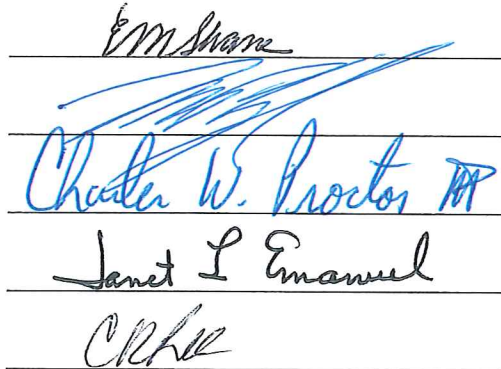 EM Shane
Charles W. Proctor III
Janet L Emanuel
CR Lee